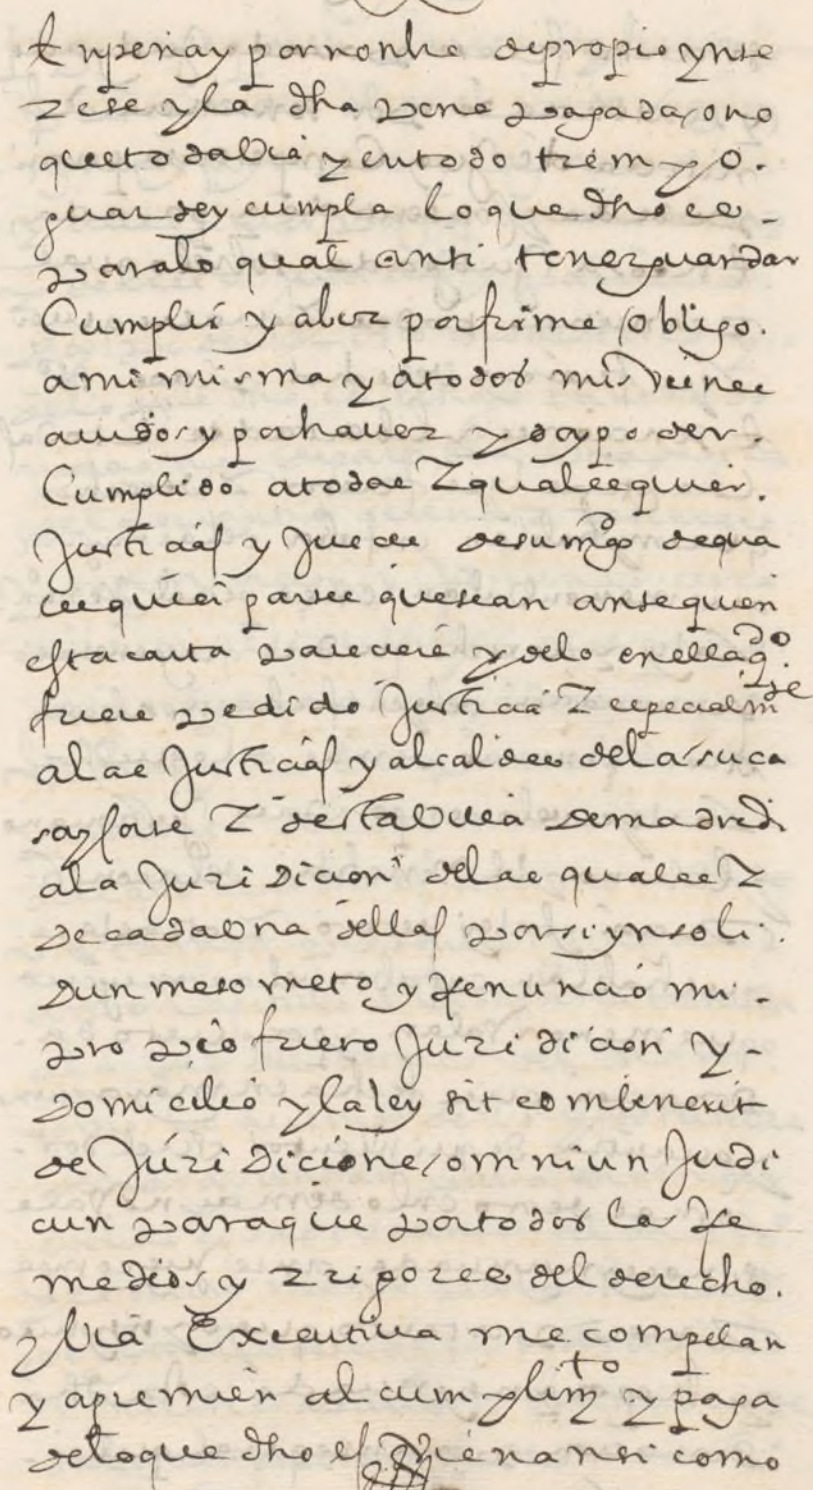 en pena y por nonbre de propio ynte
rese y la dha pena pagada o no
que todabia y en todo tiempo
guarde y cumpla lo que dho es
para lo qual ansi tener guardar
Cumplir y aber por firme obligo
a mi misma y a todos mis vienes
auidos y por hauer y doy poder
Cumplido a todas E qualesquier
Justicias y Jueces de su mgd de qua
lesquier partes que sean ante quien
esta carta pareciere y de lo en ella qdo
fuere pedido Justicia E especialmte
a las Justicias y alcaldes de la su ca
sa y corte E desta villa de madrid
a la Juridicion de las quales E
de cada una dellas por si ynsoli
dun me someto y Renuncio mi
propio fuero Juridicion y
domicilio y la ley sit combenerit
de Juridicione omniun Judi
cun para que por todos los Re
medios y rrigores del derecho
y via Executiua me compelan
y apremien al cumplimto y paga
de lo que dho es vien ansi como